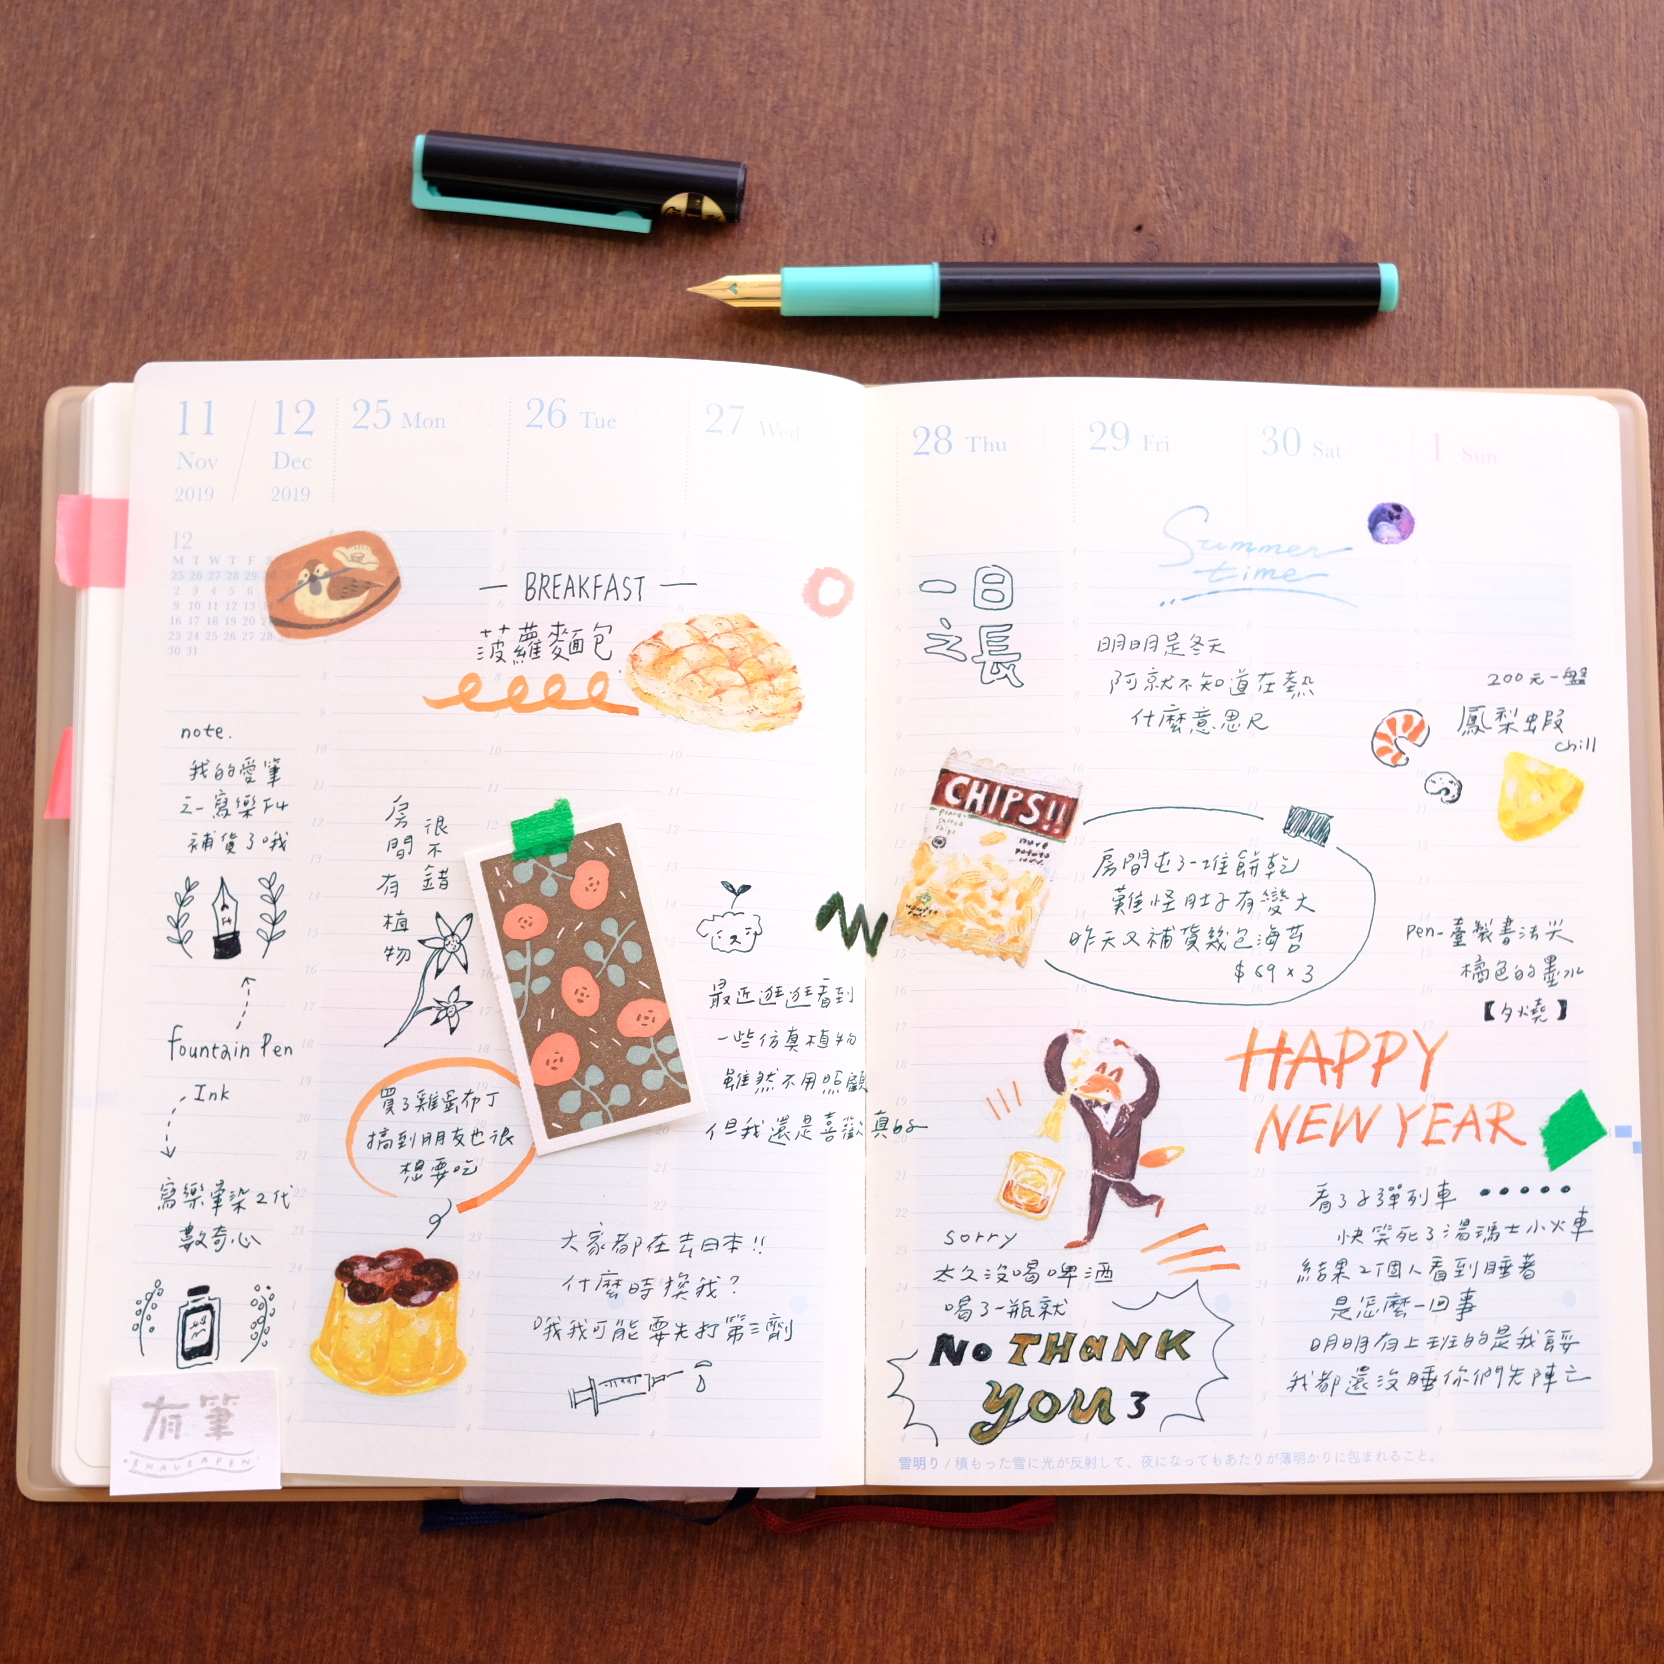 11 / 12
Nov Dec
2019 2019
25 Mon
26 Tue
27 Wed
28 Thu
29 Fri
30 Sat
1 Sun
12
M T W T F
25 26 27 28 29
2 3 4 5 6
9 10 11 12 13
16 17 18 19 20
23 24 25 26 27 28
30 31
note.
我的愛筆
之一寫樂F4
補貨了哦
fountain Pen
Ink
寫樂暈染2代
數奇心
有筆
IHAVEAPEN
— BREAKFAST —
菠蘿麵包
房間有植物
很不錯
買了雞蛋布丁
搞到朋友也很
想要吃
最近逛逛看到
一些仿真植物
雖然不用照顧
但我還是喜歡真的
大家都在去日本!!
什麼時換我?
哦我可能要先打第三劑
一日
之長
Summer
time
明明是冬天
阿就不知道在熱
什麼意思尺
200元一盤
鳳梨蝦
chill
CHIPS!!
房間屯了一堆餅乾
難怪肚子有變大
昨天又補貨幾包海苔
$69×3
Pen-臺製書法尖
橘色的墨水
【夕燒】
HAPPY
NEW YEAR
sorry
太久沒喝啤酒
喝了一瓶就
No THANK
you 3
看了子彈列車 •••••
快笑死了湯瑪士小火車
結果2個人看到睡著
是怎麼一回事
明明有上班的是我餒
我都還沒睡你們先陣亡
雪明り / 積もった雪に光が反射して、夜になってもあたりが薄明かりに包まれること。